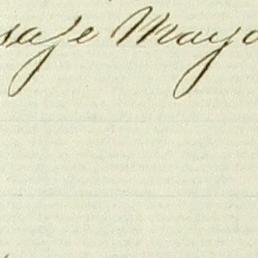 saje Mayo